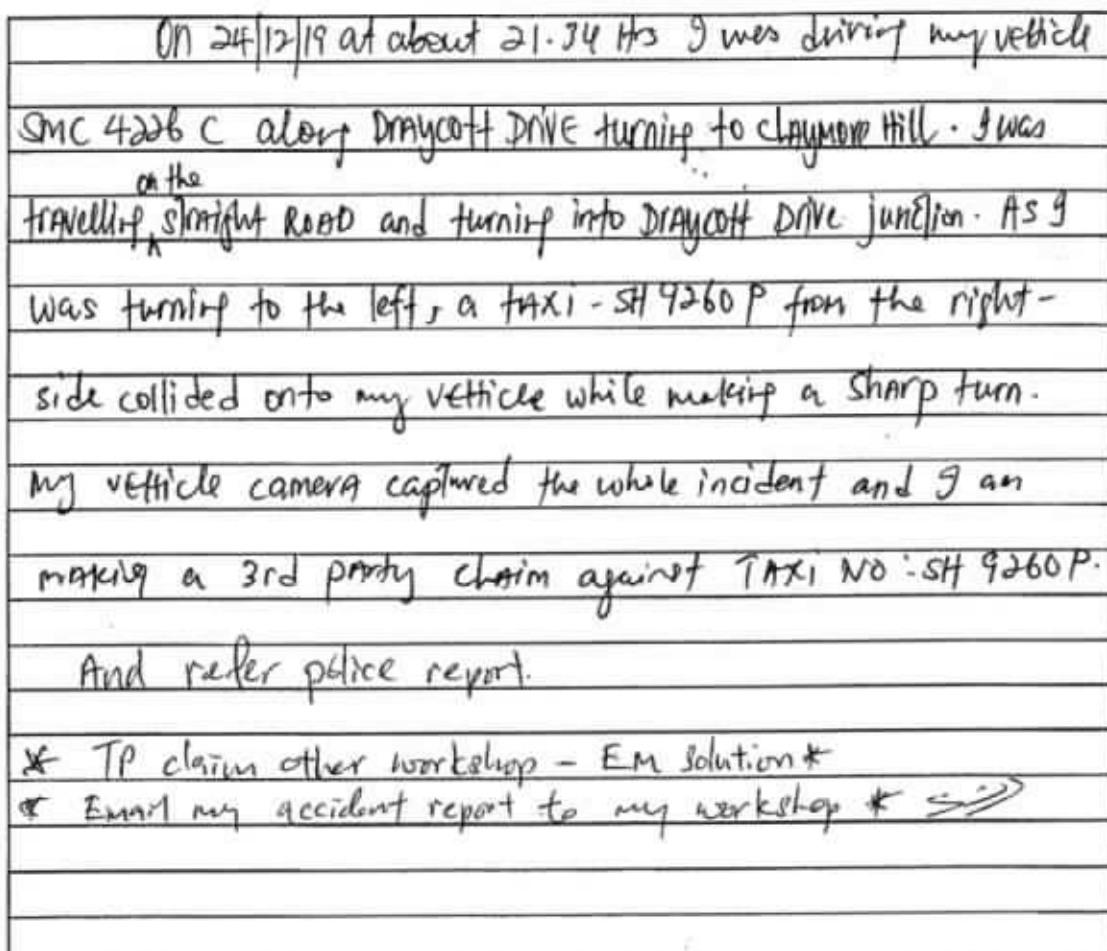 On 24/12/19 at about 21.34 Hrs I was driving my vehicle
SMC 4226 C along Draycott Drive turning to Claymore Hill. I was
on the
travelling ^ straight Road and turning into Draycott Drive junction. As I
was turning to the left, a taxi - SH 9260 P from the right-
side collided onto my vehicle while making a sharp turn.
My vehicle camera captured the whole incident and I am
making a 3rd party claim against Taxi No: SH 9260 P.
And refer police report.
* TP claim other workshop - EM solution *
* Email my accident report to my workshop *